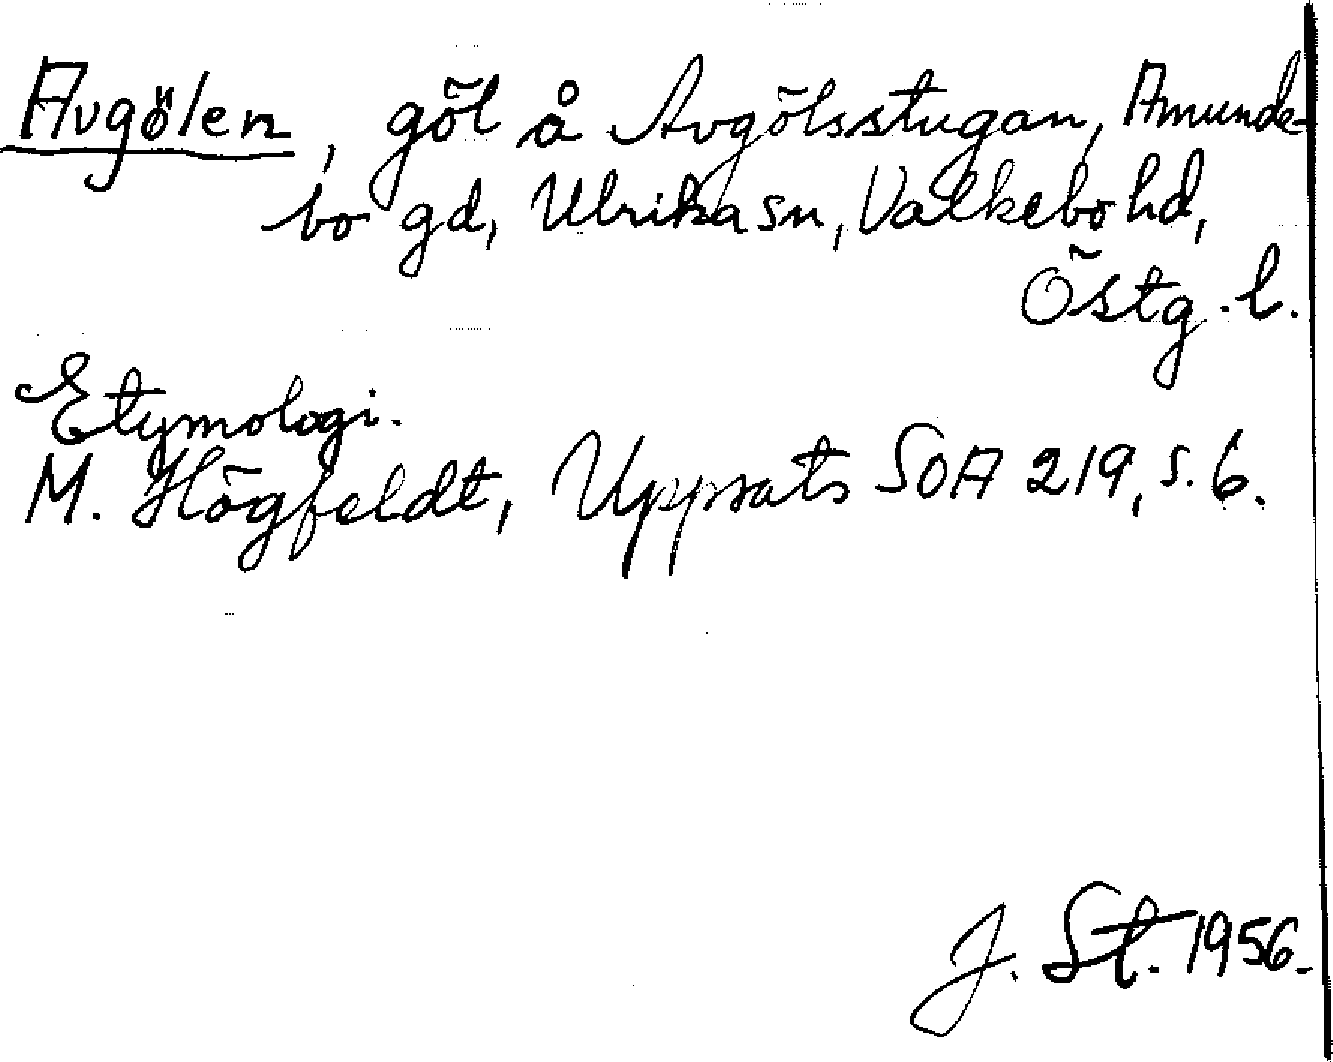 Avgölen, göl å Avgölsstugan, Amunde-
bo gd, Ulrika sn, Valkebo hd,
Östg. l.
Etymologi.
M. Högfeldt, Uppsats SOA 219, s. 6.
J. St. 1956.